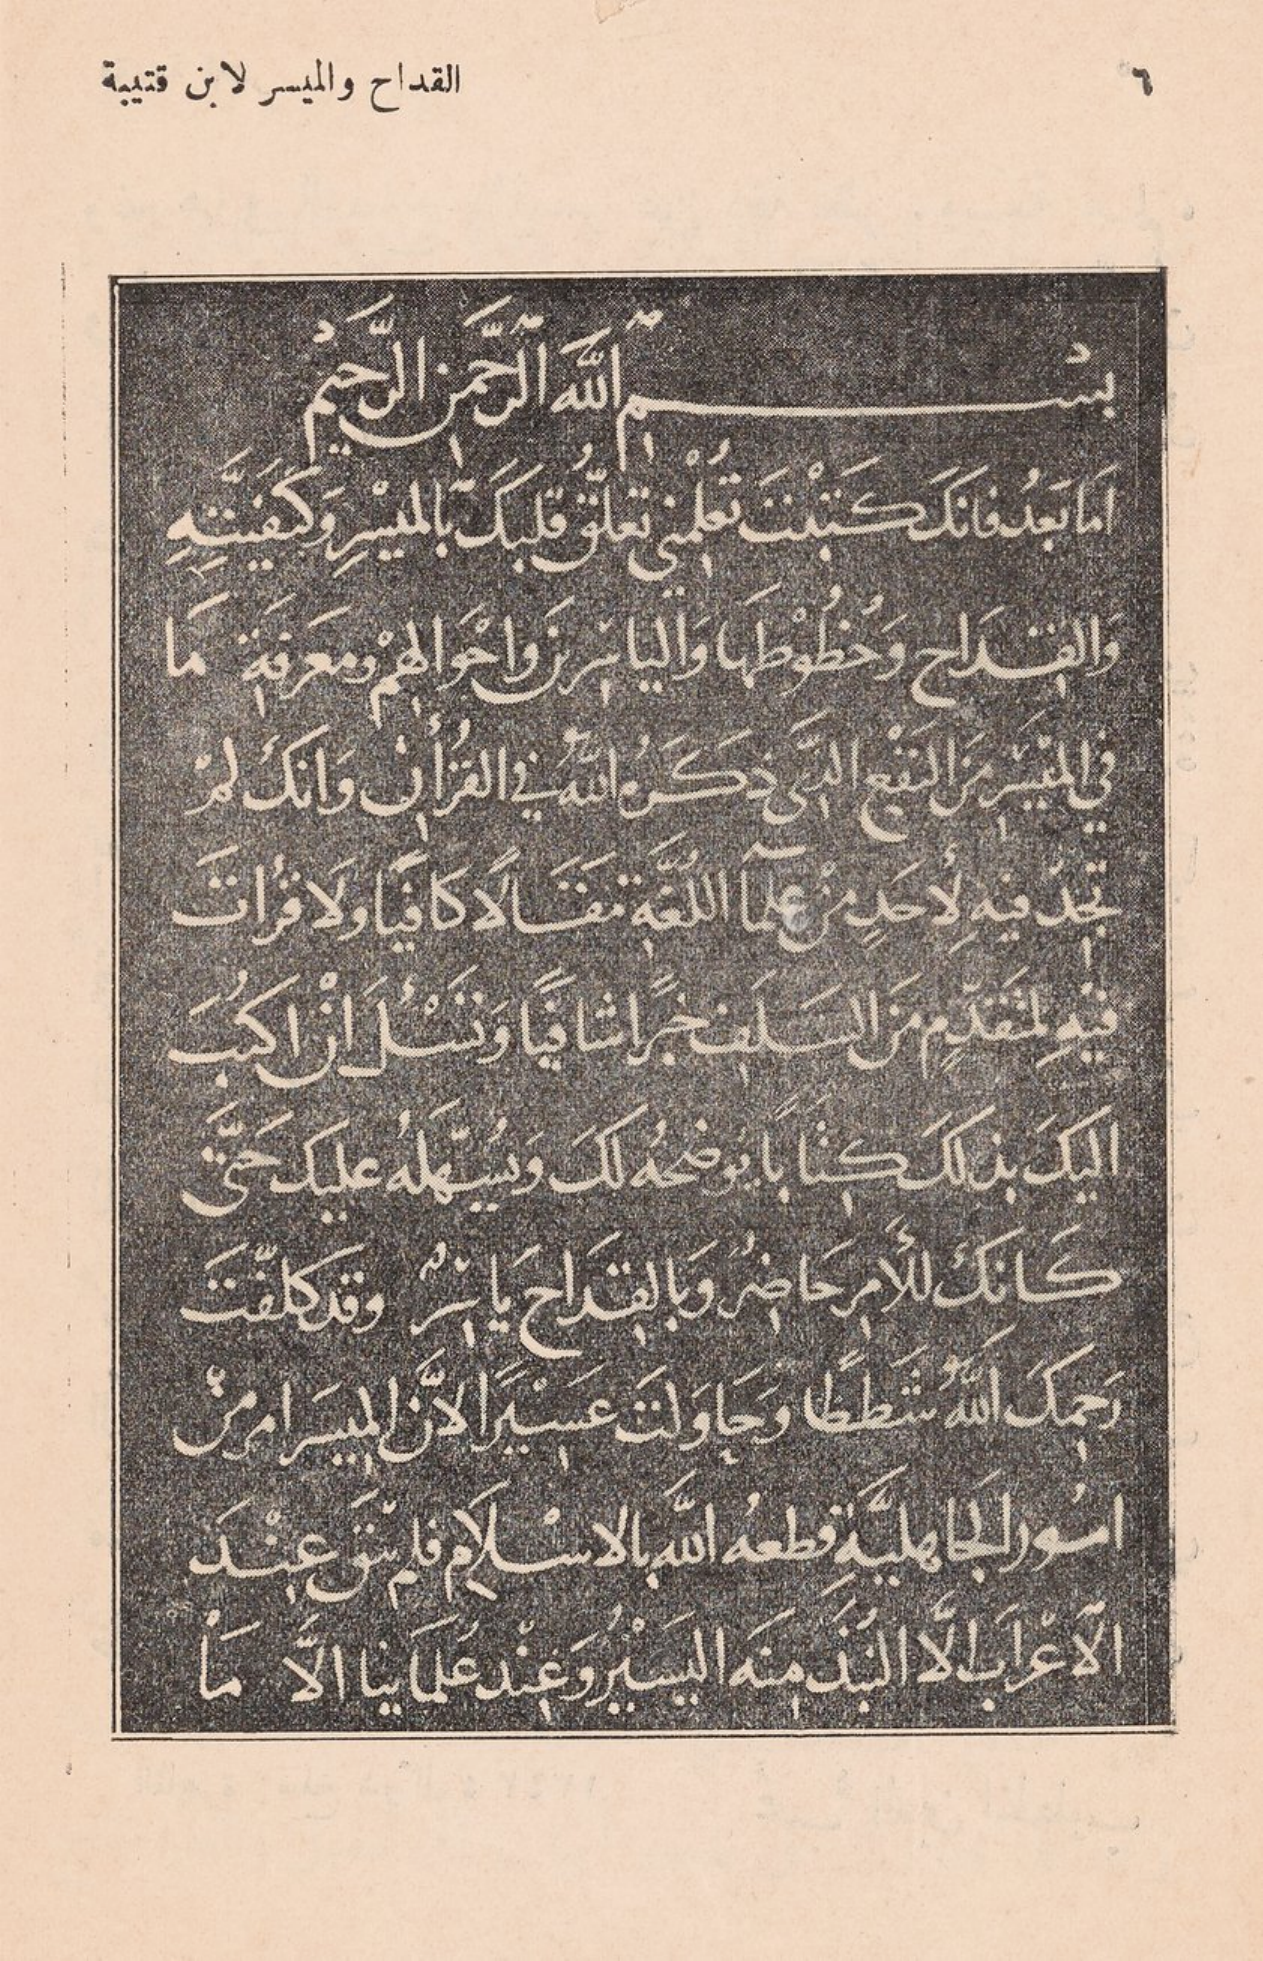 ٦
القداح والميسر لابن قتيبة
بسم الله الرحمن الرحيم
اما بعد فانك كتبت تعلمني تعلق قلبك بالميسر وكيفيته
والقداح وحظوظها والياسرين واحوالهم ومعرفة ما
في الميسر من النفع الذي ذكره الله في القرآن وانك لم
تجد فيه لأحد من علما اللغة مقالا كافيا ولا قرات
فيه لمتقدم من السلف خبرا شافيا وتسئل ان اكتب
اليك بذلك كتابا يوضحه لك ويسهله عليك حتى
كأنك للأمر حاضر وبالقداح ياسر وقد كلفت
رحمك الله شططا وحاولت عسيرا لان الميسر امر من
امور الجاهلية قطعه الله بالاسلام فلم يبق عند
الاعراب الا النبذ منه اليسير وعند علمائنا الا ما